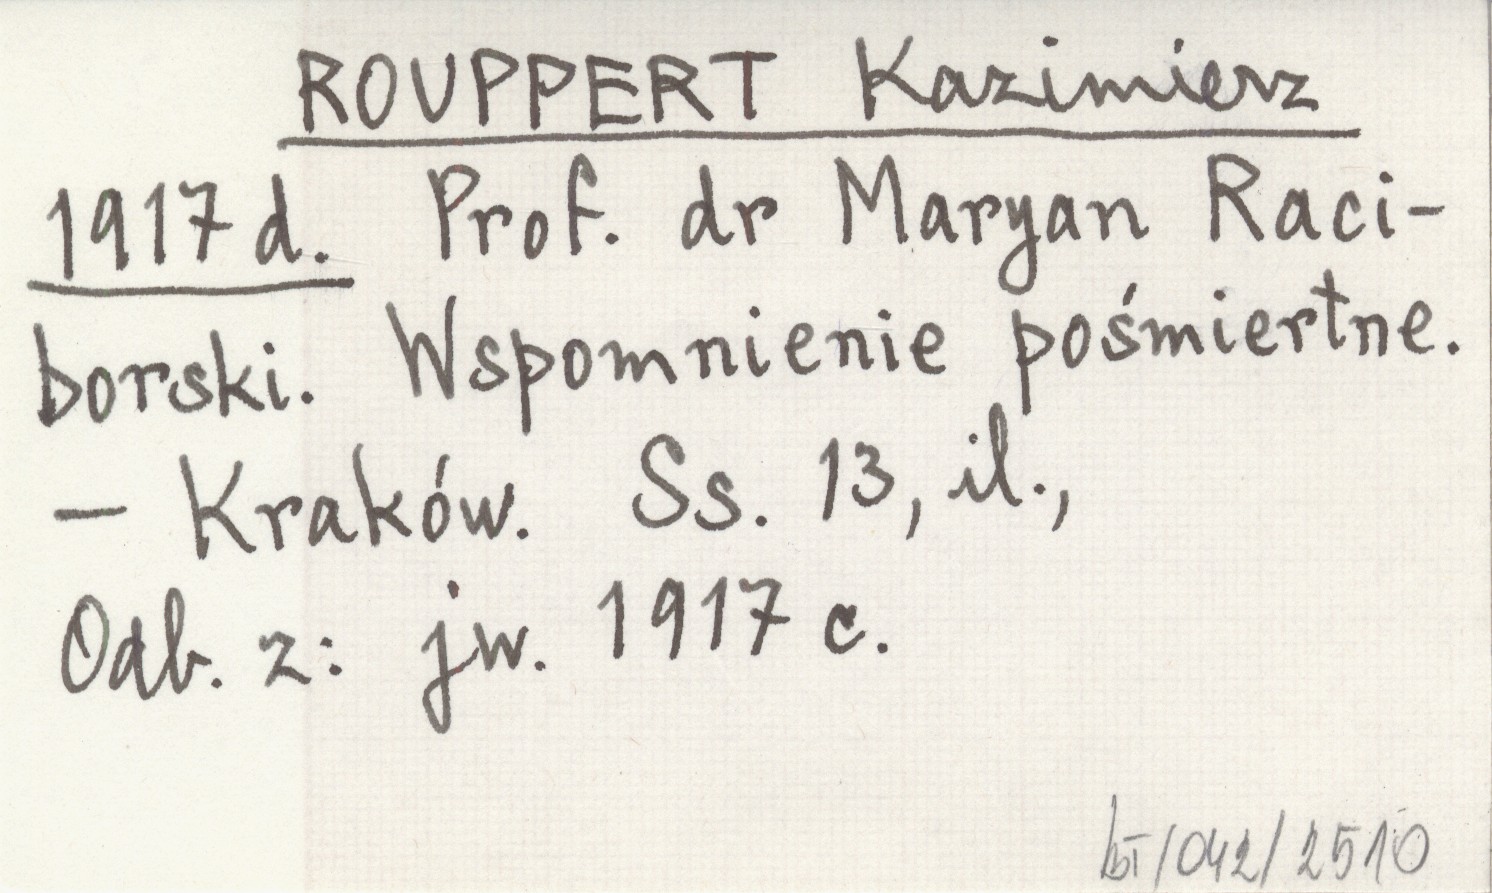 ROUPPERT Kazimierz
1917 d. Prof. dr Maryan Raci-
borski. Wspomnienie pośmiertne.
— Kraków. Ss. 13, il.,
Odb. z: jw. 1917 c.
bT/042/2510